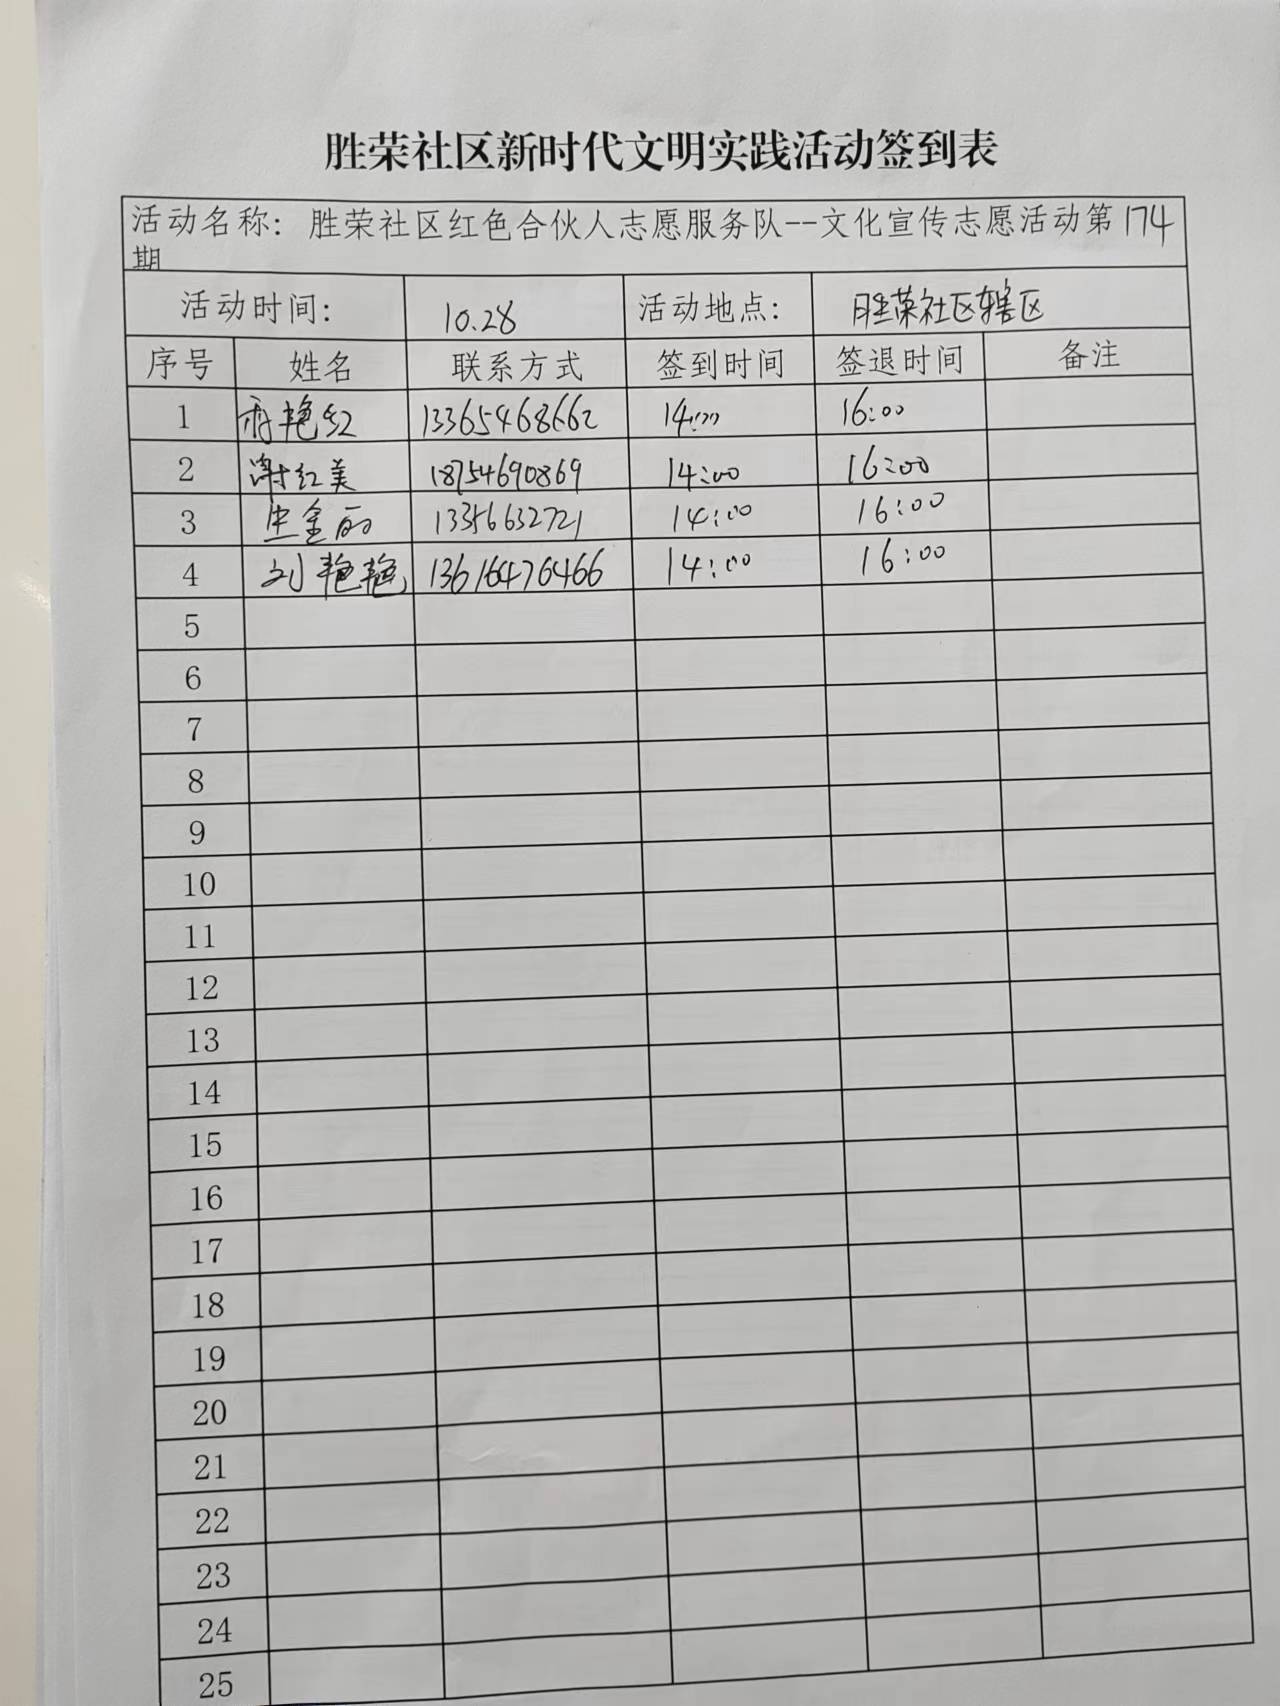 胜荣社区新时代文明实践活动签到表
活动名称：胜荣社区红色合伙人志愿服务队--文化宣传志愿活动第174
期
活动时间： 10.28 活动地点： 胜荣社区辖区
序号 姓名 联系方式 签到时间 签退时间 备注
1 艳红 13365468662 14:00 16:00
2 谢红美 18754690869 14:00 16:00
3 金丽 13356632721 14:00 16:00
4 刘艳艳 13616476466 14:00 16:00
5
6
7
8
9
10
11
12
13
14
15
16
17
18
19
20
21
22
23
24
25